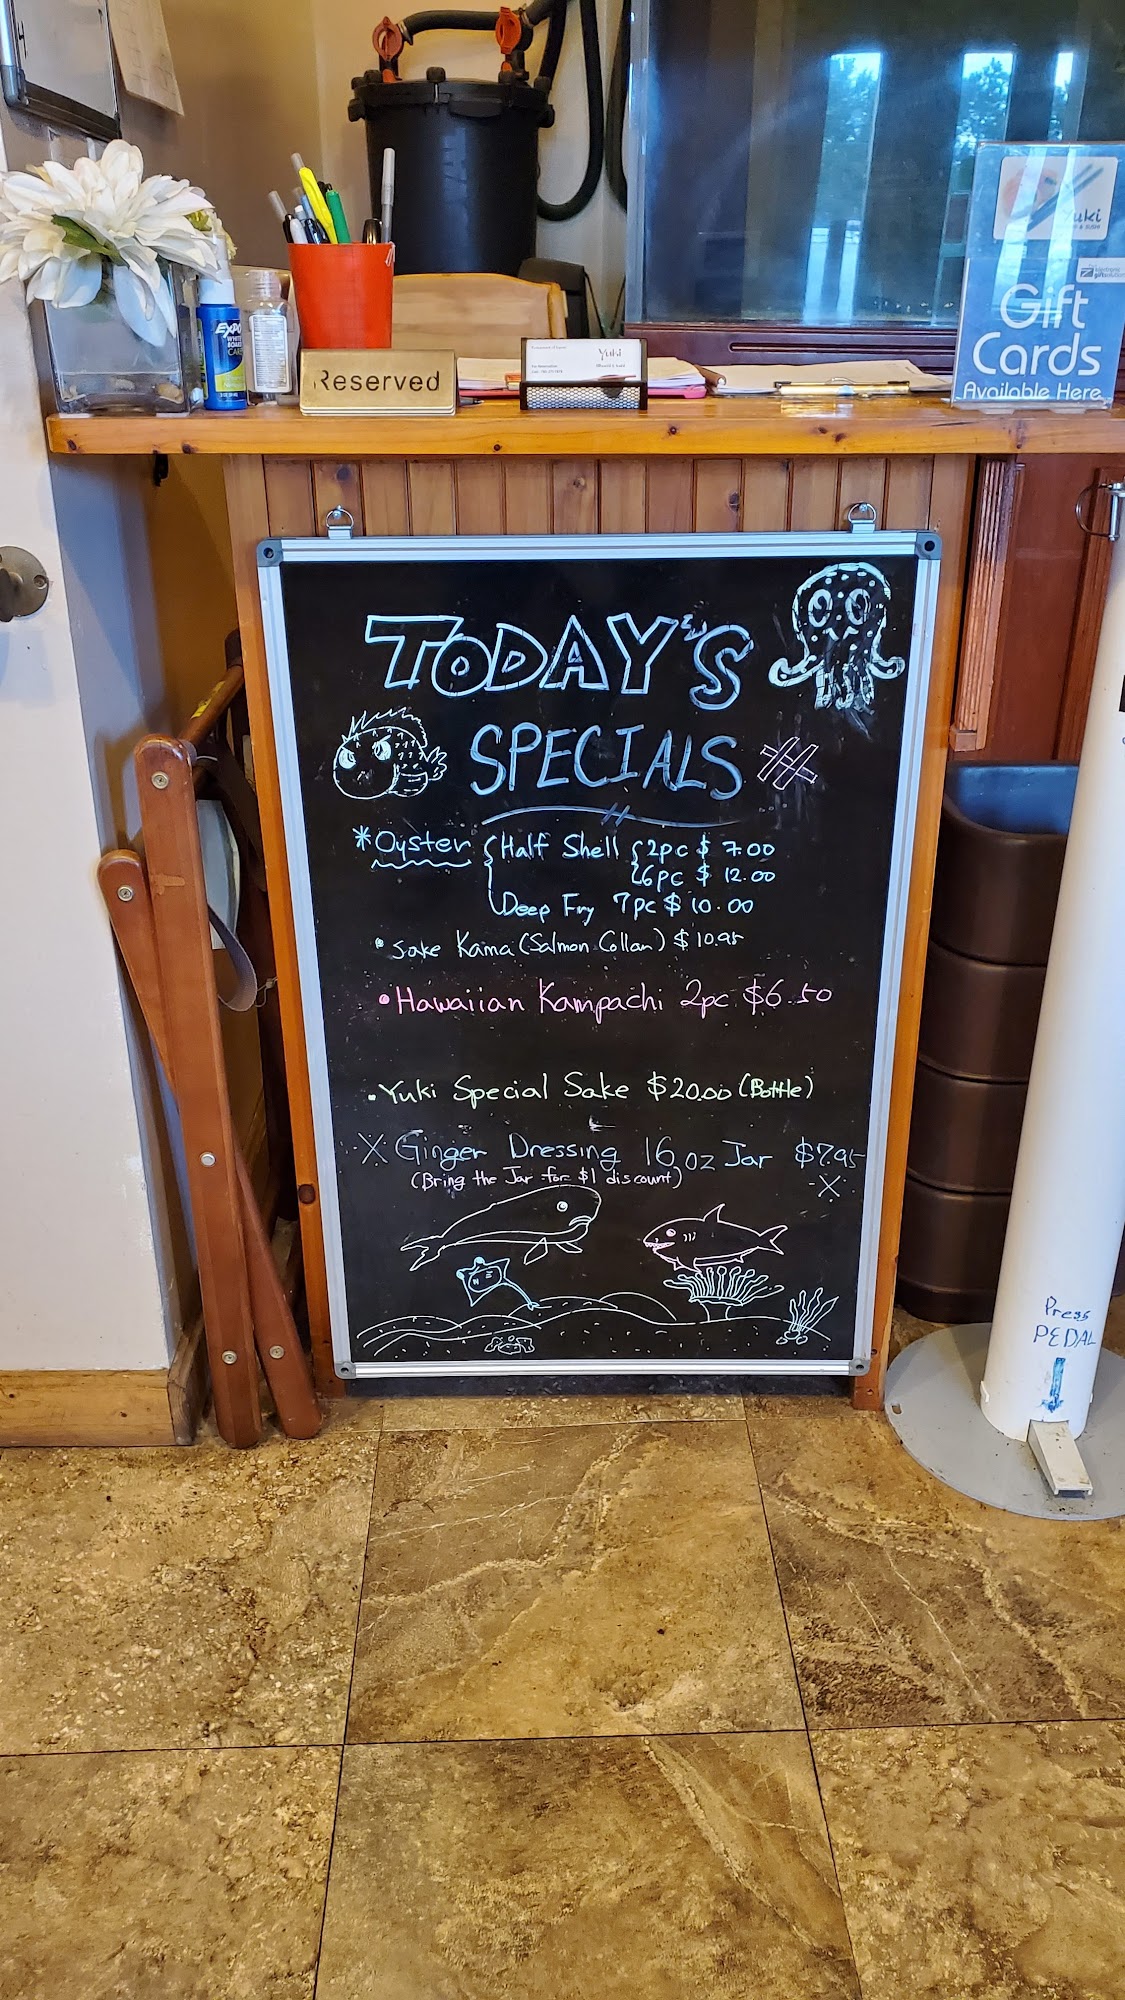 EXPO
Reserved
Yuki
Yuki
Gift
Cards
Available Here
TODAY'S
SPECIALS
*Oyster { Half Shell { 2pc $ 7.00
6pc $ 12.00
Deep Fry 7pc $ 10.00
• Sake Kama (Salmon Collar) $ 10.95
• Hawaiian Kampachi 2pc $6.50
• Yuki Special Sake $20.00 (Bottle)
X Ginger Dressing 16 oz Jar $7.95
(Bring the Jar for $1 discount) X
Press
PEDAL